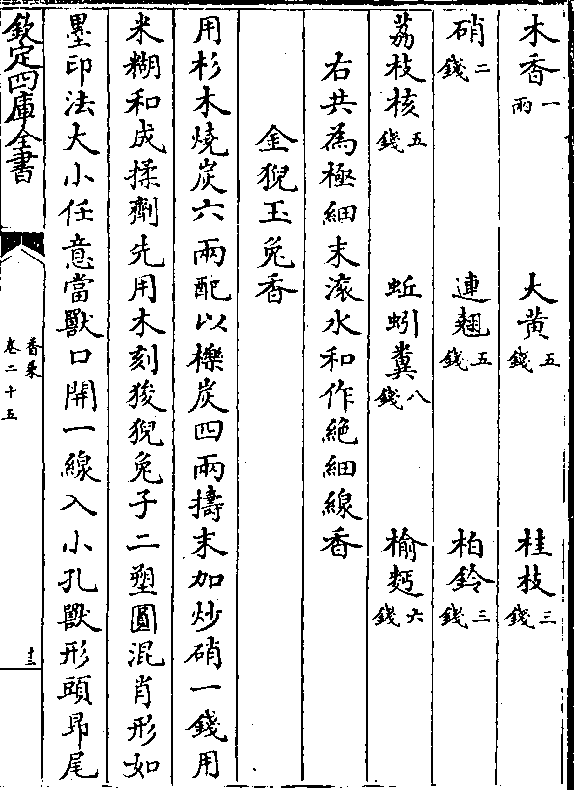 木香一兩 大黃五錢 桂枝三錢
硝二錢 連翹五錢 柏鈴三錢
荔枝核五錢 蚯蚓糞八錢 榆麪六錢
右共為極細末滚水和作絶細線香
金猊玉兔香
用杉木燒炭六兩配以櫟炭四兩擣末加炒硝一錢用
米糊和成揉劑先用木刻狻猊兔子二塑圓混肖形如
墨印法大小任意當獸口開一線入小孔獸形頭昂尾
欽定四庫全書
香乗
卷二十五
十三